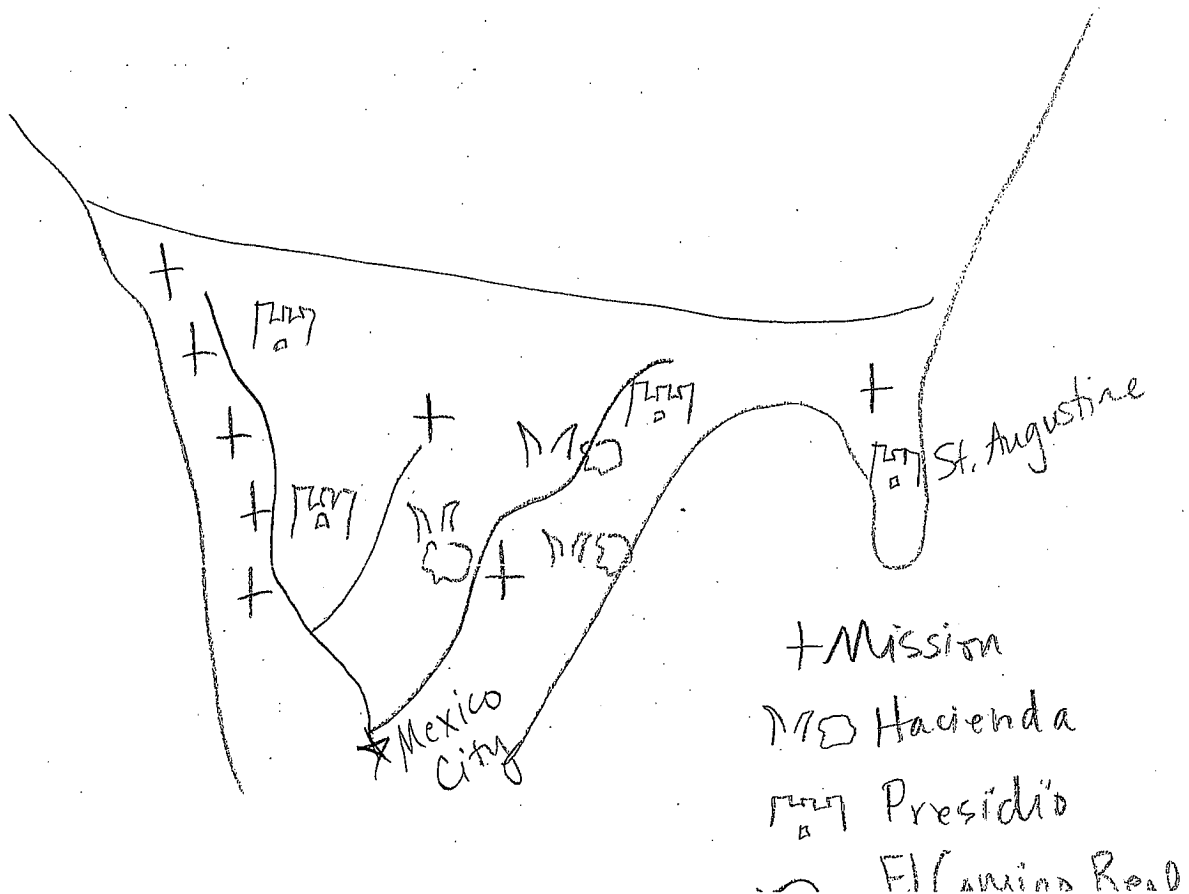 St. Augustine
Mexico
City
Mission
Hacienda
Presidio
El Camino Real